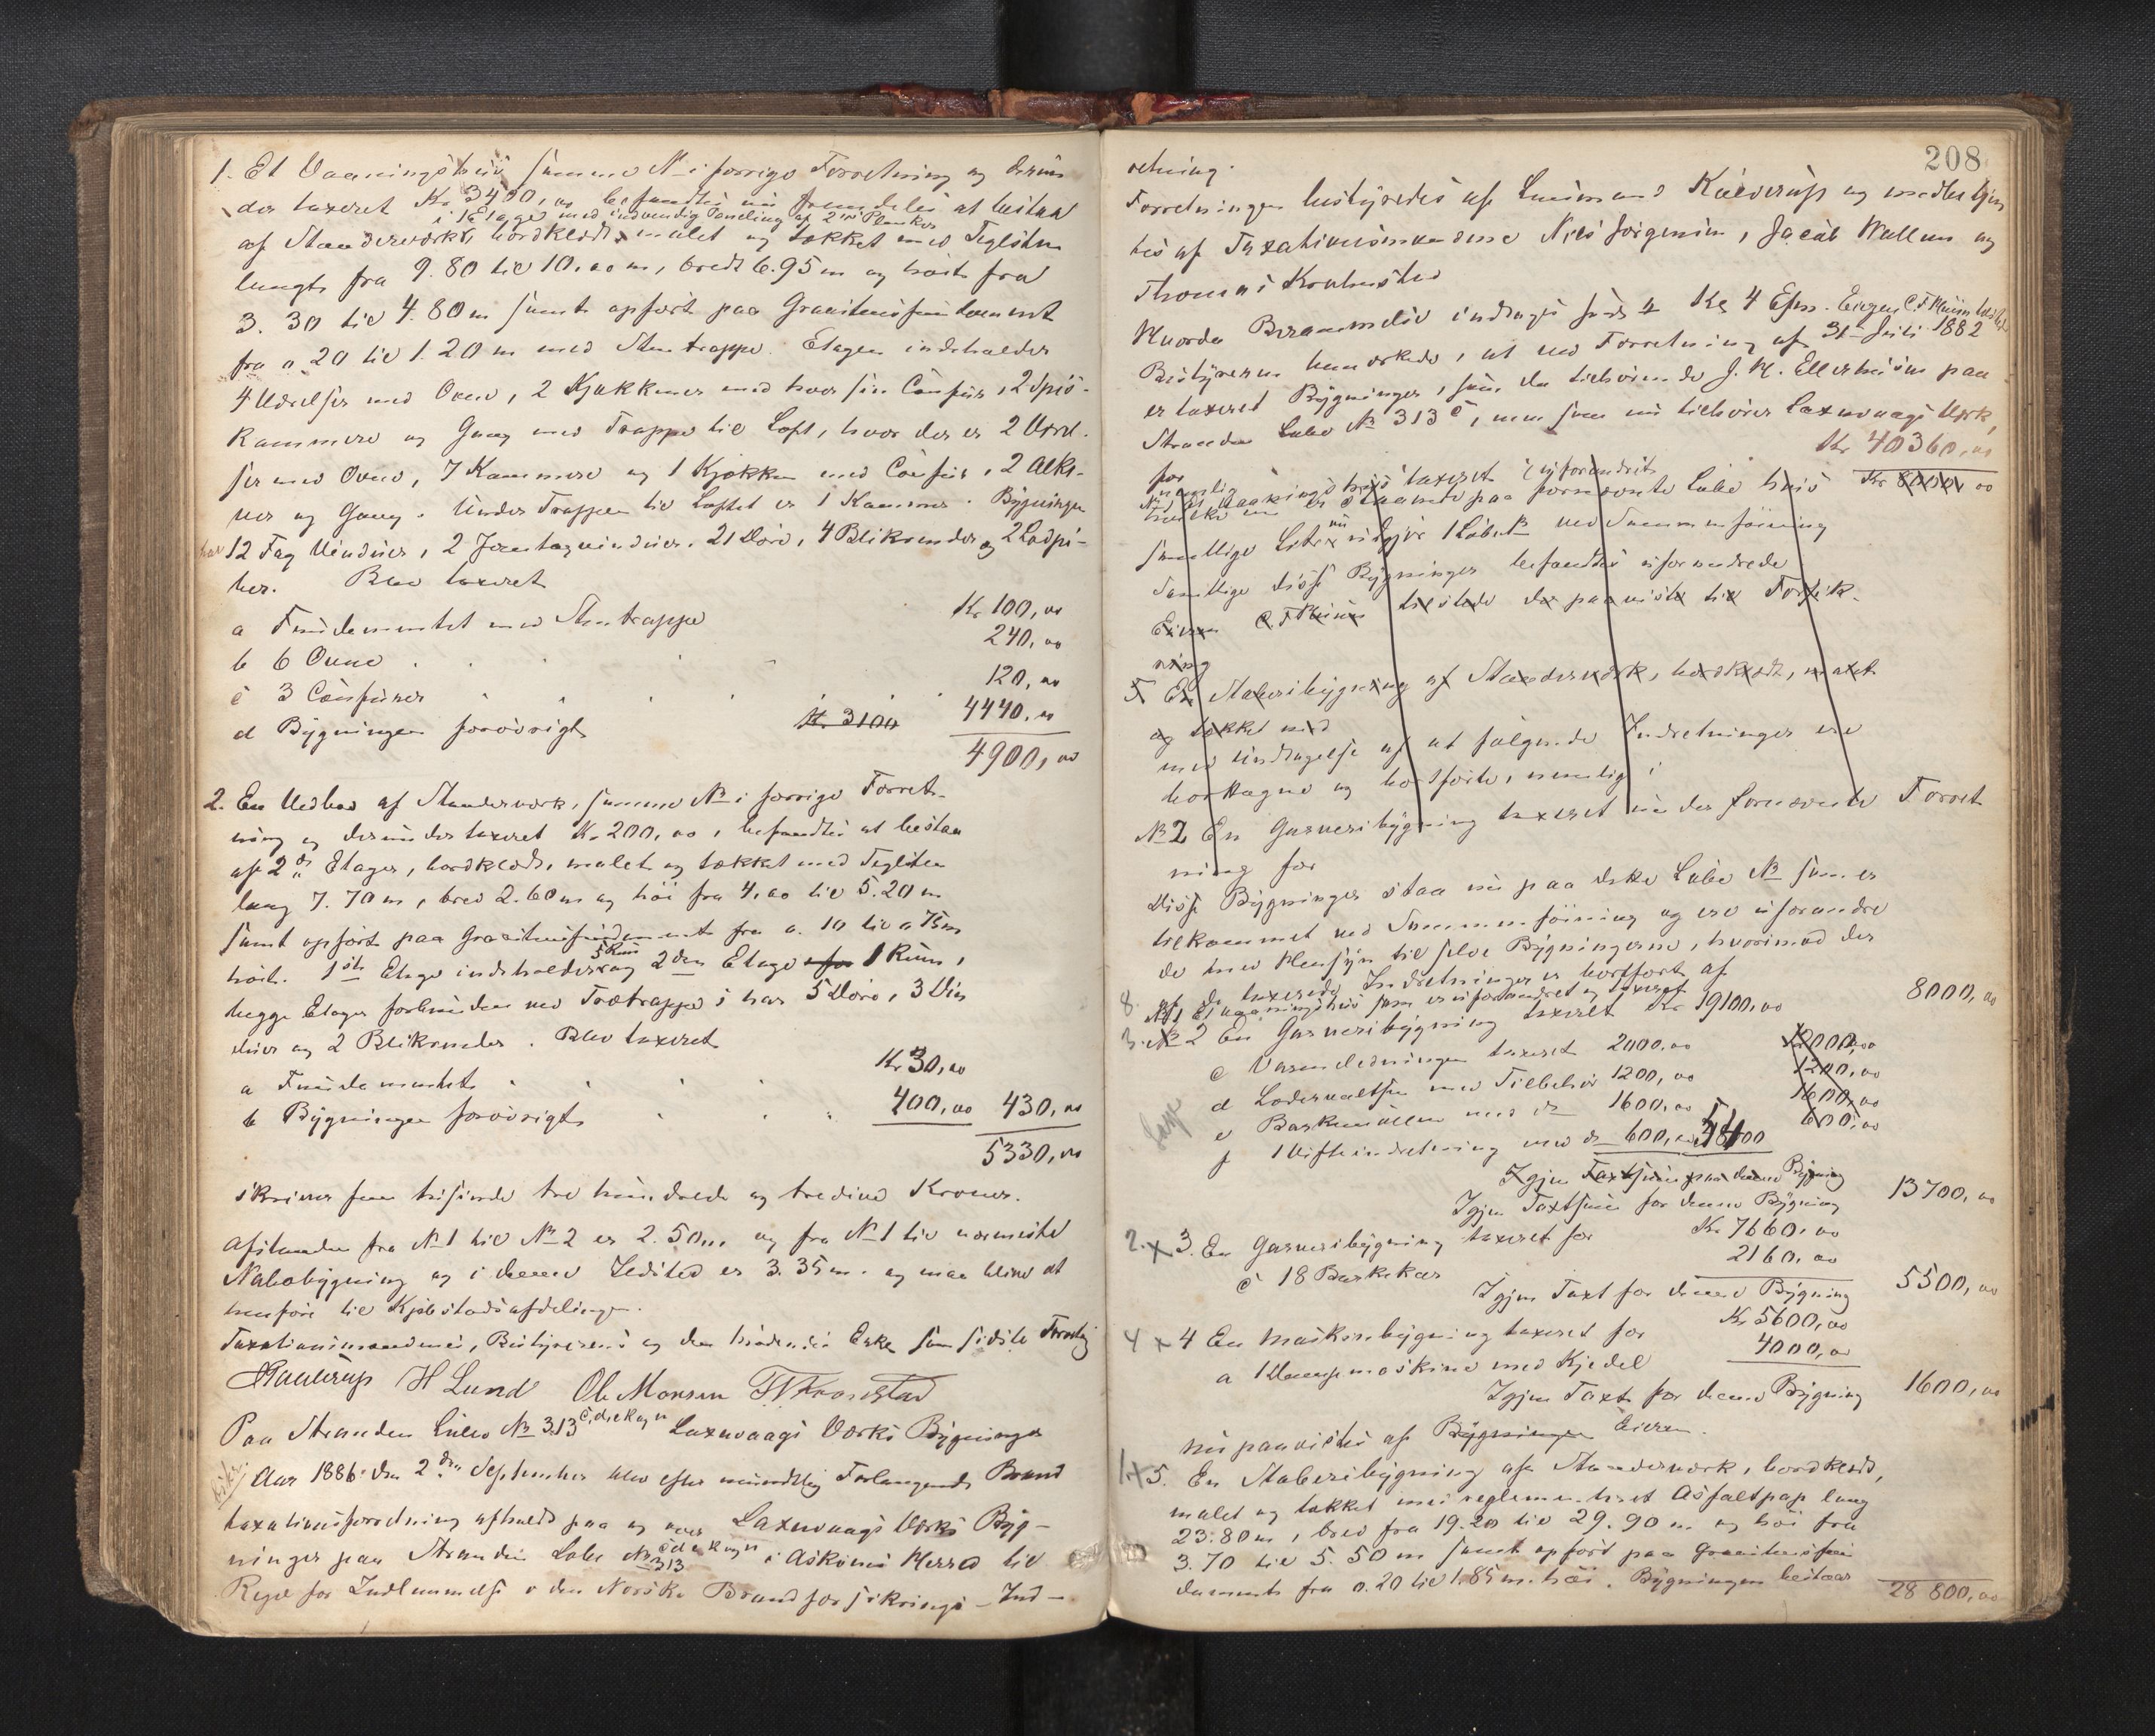 1. Et Vaaningshuus samme No i forrige Forretning og derun-
der taxeret Kr 3400,00 befandtes nu fremdeles at bestaa
i 1 Etage med indvendig Paneling af 2" Planker
af Standerværk, bordklædt, malet og tækket med Teglsten
langt fra 9.80 til 10.00 m, bredt 6.95 m og høit fra
3.30 til 4.80 m samt opført paa Graastensfundament
fra 0.20 til 1.20 m med Stentrappe. Etagen indeholder
4 Værelser med Ovne, 2 Kjøkkener med hver sin Comfur, 2 Spis-
kammere og Gang med Trappe til Loft, hvor der er 2 Værel-
ser med Ovne, 7 Kammere og 1 Kjøkken med Comfur, 2 Alko-
ver og Gang. Under Trappen til Loftet er 1 Kammer. Bygningen
har 12 Fag Vinduer, 2 Jerntagvinduer, 21 Døre, 4 Blikrender og 2 Ladpi-
ber. Blev taxeret
a Fundamentet med Stentrappe Kr 100,00
b 6 Ovne 240,00
c 3 Comfurer 120,00
d Bygningen forøvrigt Kr 3100 4440,00
4900,00
2. En Vedbod af Standerværk, samme No i forrige Forret-
ning og derunder taxeret Kr 200,00, befandtes at bestaa
af 2de Etager, bordklædt, malet og tækket med Teglsten
lang 7.70 m, bred 2.60 m og høi fra 4,00 til 5.20 m
samt opført paa Graastensfundament fra 0.10 til 0.75 m
høit. 1ste Etage indeholder 5 Rum og 2den Etage 1 Rum,
begge Etager forbunden ved Trætrappe; har 5 Døre, 3 Vin
duer og 2 Blikrender. Blev taxeret
a Fundamentet Kr 30,00
b Bygningen forøvrigt 400,00 430,00
5330,00
skriver fem tusinde tre hundrede og tredive Kroner.
Afstanden fra No 1 til No 2 er 2.50 m og fra No 1 til nærmeste
Nabobygning og i denne Ildsted er 3.35 m. og maa blive at
henføre til Kjøbstadsafdelingen.
Taxationsmændenes, Bestyrerens og den Eske som sidste Forretg
H Lund Ole Monsen
Paa Stranden Lubo No 313 c, d, e k og n Laxevaags Værks Bygninger
Aar 1886 den 2den September blev efter mundtlig Forlangende Brand
taxationsforretning afholdt paa og over Laxevaags Værks Byg-
ninger paa Stranden Lubo No 313 c d e k og n i Askøens Herred til
Regel for Indlemmelse i den Norske Brandforsikrings-Ind-
208
retning.
Forretningen bestyredes af Lensmand og medbetjen
tes af Taxationsmændene Nils Jørgensen, Jacob Wallem og
Thomas Kronstad
Hvorda Beramm indtoges Kl 4 Efm. Eieren C. F.
Bestyreren bemærkede, at ved Forretning af 31te Juli 1882
er taxeret Bygninger, som da tilhørende J. M. Ellertsen paa
Stranden Lubo No 313 c, men som nu tilhører Laxevaags Værk,
for Kr 40360,00
nemlig
No 1 Et Vaaningshuus taxeret uforandret Kr 8000 00
hvilke nu er staaende paa fornævnte Lubo
samtlige nu udgjør 1 Lubo No ved Sammenføining
Samtlige disse Bygninger befandtes uforandrede
Eieren C. F. tilstede der paaviste til Forsik-
ring
5 En Staberibygning af Standerværk, bordklædt, malet
og tækket med
med Undtagelse af at følgende Indretninger ere
borttagne og bortførte, nemlig:
No 2 En Garveribygning taxeret under fornævnte Forret
ning for
Disse Bygninger staa nu paa dette Lubo No som er
tilkommet ved Sammenføining og ere uforandre
de med Hensyn til selve Bygningerne, hvorimod der
af de taxerede Indretninger er bortført af
8. No 1 Et Vaaningshuus som er uforandret og taxeret 8000,00
3. No 2 En Garveribygning taxeret Kr 19100,00
c Varmeledningen taxeret 2000,00 2000,00
d Lædervaltsen med Tilbehør 1200,00 1200,00
e Barkemøllen med do 1600,00 1600,00
f 1 Vifteindretning med do 600,00 5400 600,00
Igjen Taxtsum paa denne Bygning
Igjen Taxtsum for denne Bygning 13700,00
2. x 3. En Garveribygning taxeret for Kr 7660,00
c 18 Barkekar 2160,00
Igjen Taxt for denne Bygning 5500,00
4 x 4 En Maskinbygning taxeret for Kr 5600,00
a 1 Dampmaskine med Kjedel 4000,00
Igjen Taxt for denne Bygning 1600,00
nu paavistes af Bygningen Eieren.
1. x 5. En Staberibygning af Standerværk, bordklædt,
malet og tækket med reglementeret Asfaltpap lang
23.80 m, bred fra 19.20 til 29.90 m og høi fra
3.70 til 5.50 m samt opført paa Graastensfun
dament fra 0.20 til 1.85 m. høi. Bygningen bestaar
28 800,00